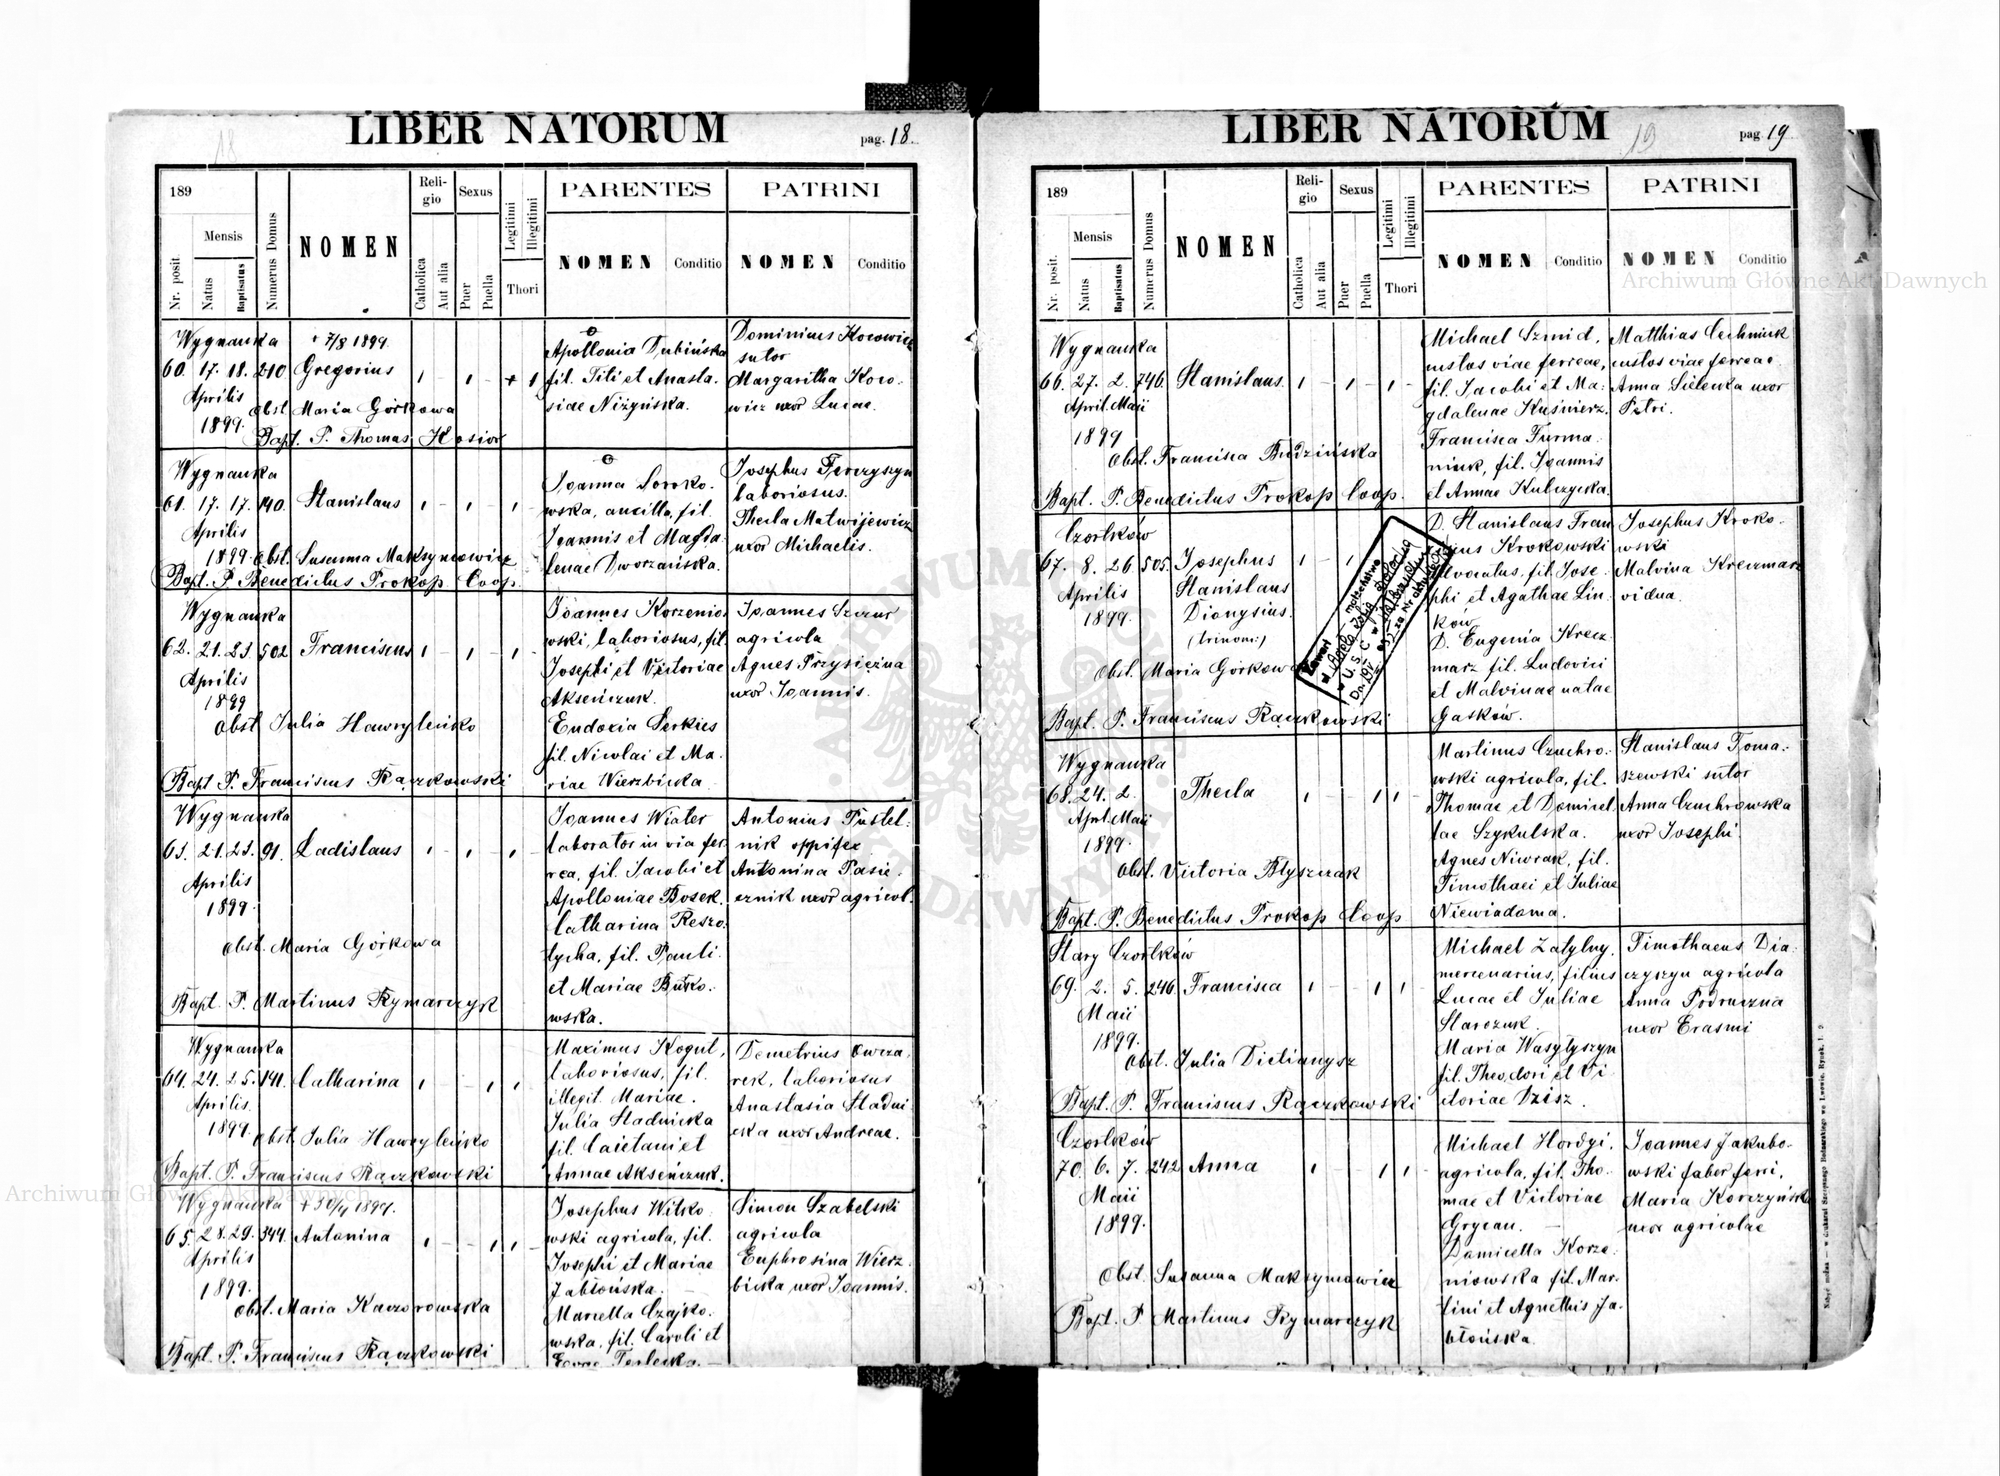 LIBER NATORUM
pag. 18.
189
Mensis
Nr. posit.
Natus
Baptisatus
Numerus Domus
NOMEN
Reli-
gio
Catholica
Aut alia
Sexus
Puer
Puella
Legitimi
Illegitimi
Thori
PARENTES
NOMEN
Conditio
PATRINI
NOMEN
Conditio
Wygnanka
+ 7/8 1899.
60. 17. 18. 210. Gregorius
Aprilis
1899.
Obst. Maria Górkowa
Bapt. P. Thomas Kosior
Apollonia Dubińska
fil. Titi et Anasta-
siae Niżyńska.
Dominicus Korowicz
sutor
Margaritha Koro-
wicz uxor Lucae.
Wygnanka
61. 17. 17. 140. Stanislaus
Aprilis
1899. Obst. Susanna Maksymowicz
Bapt. P. Benedictus Prokop Coop.
Joanna Soroko-
wska, ancilla, fil.
Joannis et Magda-
lenae Dworzańska.
Josephus Ferczyszyn
laboriosus.
Thecla Matwijewicz
uxor Michaelis.
Wygnanka
62. 21. 23. 502. Franciscus
Aprilis
1899
Obst. Julia Hawryleńko
Bapt. P. Franciscus Rączkowski
Joannes Korzenio-
wski, laboriosus, fil.
Josephi et Victoriae
Akseńczuk.
Eudoxia Serkies
fil. Nicolai et Ma-
riae Wierzbicka
Joannes Szczur
agricola
Agnes Przysiężna
uxor Joannis.
Wygnanka
63. 21. 23. 91. Ladislaus
Aprilis
1899.
Obst. Maria Górkowa
Bapt. P. Martinus Rymarczyk
Joannes Wiater
laborator in via fer-
rea, fil. Jacobi et
Apolloniae Bosek.
Catharina Reszo-
tycha, fil. Pauli
et Mariae Buko-
wska.
Antonius Pustel-
nik opifex
Antonina Pasie-
cznik uxor agricol.
Wygnanka
64. 24. 25. 141. Catharina
Aprilis
1899.
Obst. Julia Hawryleńko
Bapt. P. Franciscus Rączkowski
Maximus Kogut,
laboriosus, fil.
illegit. Mariae.
Julia Stadnicka
fil. Caietani et
Annae Akseńczuk.
Demetrius Owcza-
rek, laboriosus
Anastasia Stadni-
cka uxor Andreae.
Wygnanka + 30/4 1899.
65. 28. 29. 344. Antonina
Aprilis
1899.
Obst. Maria Kaczorowska
Bapt. P. Franciscus Rączkowski
Josephus Witko-
wski agricola, fil.
Josephi et Mariae
Jabłońska.
Marcella Czajko-
wska, fil. Caroli et
Terlecka.
Simon Szabelski
agricola
Euphrosina Wierz-
bicka uxor Joannis.
LIBER NATORUM
19
pag. 19.
189
Mensis
Nr. posit.
Natus
Baptisatus
Numerus Domus
NOMEN
Reli-
gio
Catholica
Aut alia
Sexus
Puer
Puella
Legitimi
Illegitimi
Thori
PARENTES
NOMEN
Conditio
PATRINI
NOMEN
Conditio
Wygnanka
66. 27. 2. 746. Stanislaus
April. Maii
1899
Obst. Francisca Budzińska
Bapt. P. Benedictus Prokop Coop.
Michael Szmid,
custos viae ferreae,
fil. Jacobi et Ma-
gdalenae Kuśnierz.
Francisca Furma-
niuk, fil. Joannis
et Annae Kulczycka.
Matthias Cechmiuk
custos viae ferreae
Anna Sielenka uxor
Petri.
Czortków
67. 8. 26. 505. Josephus
Aprilis
1899.
Stanislaus
Dionysius.
(trinom:)
Obst. Maria Górkowa
Bapt. P. Franciscus Rączkowski
D. Stanislaus Fran
Krokowski
advocatus, fil. Jose-
phi et Agathae Lin-
ków
D. Eugenia Krecz-
marz fil. Ludovici
et Malvinae natae
Gasków.
Josephus Kroko-
wski
Malvina Kreczmarz
vidua.
Wygnanka
68. 24. 2. Thecla
April. Maii
1899.
Obst. Victoria Błyszczak
Bapt. P. Benedictus Prokop Coop
Martinus Czuchro-
wski agricola, fil.
Thomae et Domicel-
lae Szykulska.
Agnes Niwrak, fil.
Timothaei et Juliae
Niewiadoma.
Stanislaus Toma-
szewski sutor
Anna Czuchrowska
uxor Josephi.
Stary Czortków
69. 2. 5. 246. Francisca
Maii
1899.
Obst. Julia Dictianysz
Bapt. P. Franciscus Rączkowski
Michael Zatylny,
mercenarius, filius
Lucae et Juliae
Starczuk.
Maria Wasyłyszyn
fil. Theodori et Vi-
ctoriae Dzisz.
Timothaeus Dia-
czyszyn agricola
Anna Podruczna
uxor Erasmi
Czortków
70. 6. 7. 242 Anna
Maii
1899.
Obst. Susanna Maksymowicz
Bapt. P. Martinus Rymarczyk
Michael Hordyi,
agricola, fil. Tho-
mae et Victoriae
Grycan.
Domicella Korze-
niowska fil. Mar-
tini et Agnethis Ja-
błońska.
Joannes Jakubo-
wski faber ferri,
Maria Korczyńska
uxor agricolae
Archiwum Główne Akt Dawnych
Archiwum Główne Akt Dawnych